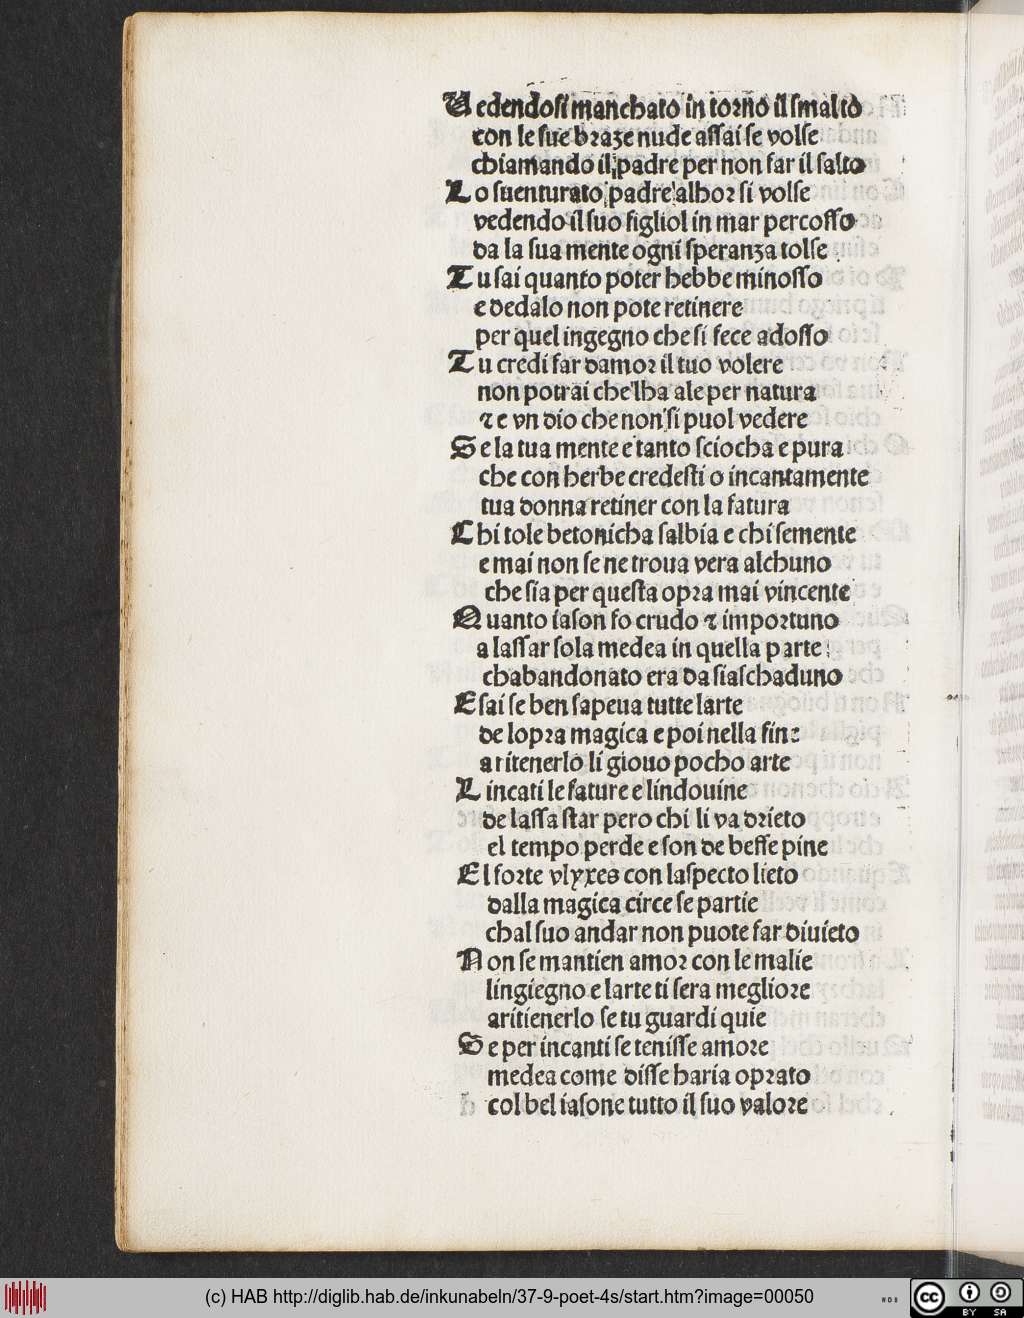 Uedendosi manchato in torno il smalto
con le sue braze nude assai se volse
chiamando il padre per non far il salto
Lo suenturato padre alhor si volse
vedendo il suo figliol in mar percosso
da la sua mente ogni speranza tolse
Tu sai quanto poter hebbe minosso
e dedalo non pote retinere
per quel ingegno che si fece adosso
Tu credi far damor il tuo volere
non potrai chelha ale per natura
⁊ e vn dio che non si puol vedere
Se la tua mente e tanto sciocha e pura
che con herbe credesti o incantamente
tua donna retiner con la fatura
Chi tole betonicha salbia e chi semente
e mai non se ne troua vera alchuno
che sia per questa opra mai vincente
Quanto iason fo crudo ⁊ importuno
a lassar sola medea in quella parte
chabandonato era da siaschaduno
E sai se ben sapeua tutte larte
de lopra magica e poi nella fine
a ritenerlo li giouo pocho arte
Lincati le fature e lindouine
de lassa star pero chi li va drieto
el tempo perde e son de beffe pine
El forte vlyxes con laspecto lieto
dalla magica circe se partie
chal suo andar non puote far diuieto
Non se mantien amor con le malie
lingiegno e larte ti sera megliore
aritienerlo se tu guardi quie
Se per incanti se tenisse amore
medea come disse haria oprato
col bel iasone tutto il suo valore
(c) HAB http://diglib.hab.de/inkunabeln/37-9-poet-4s/start.htm?image=00050
cc BY SA